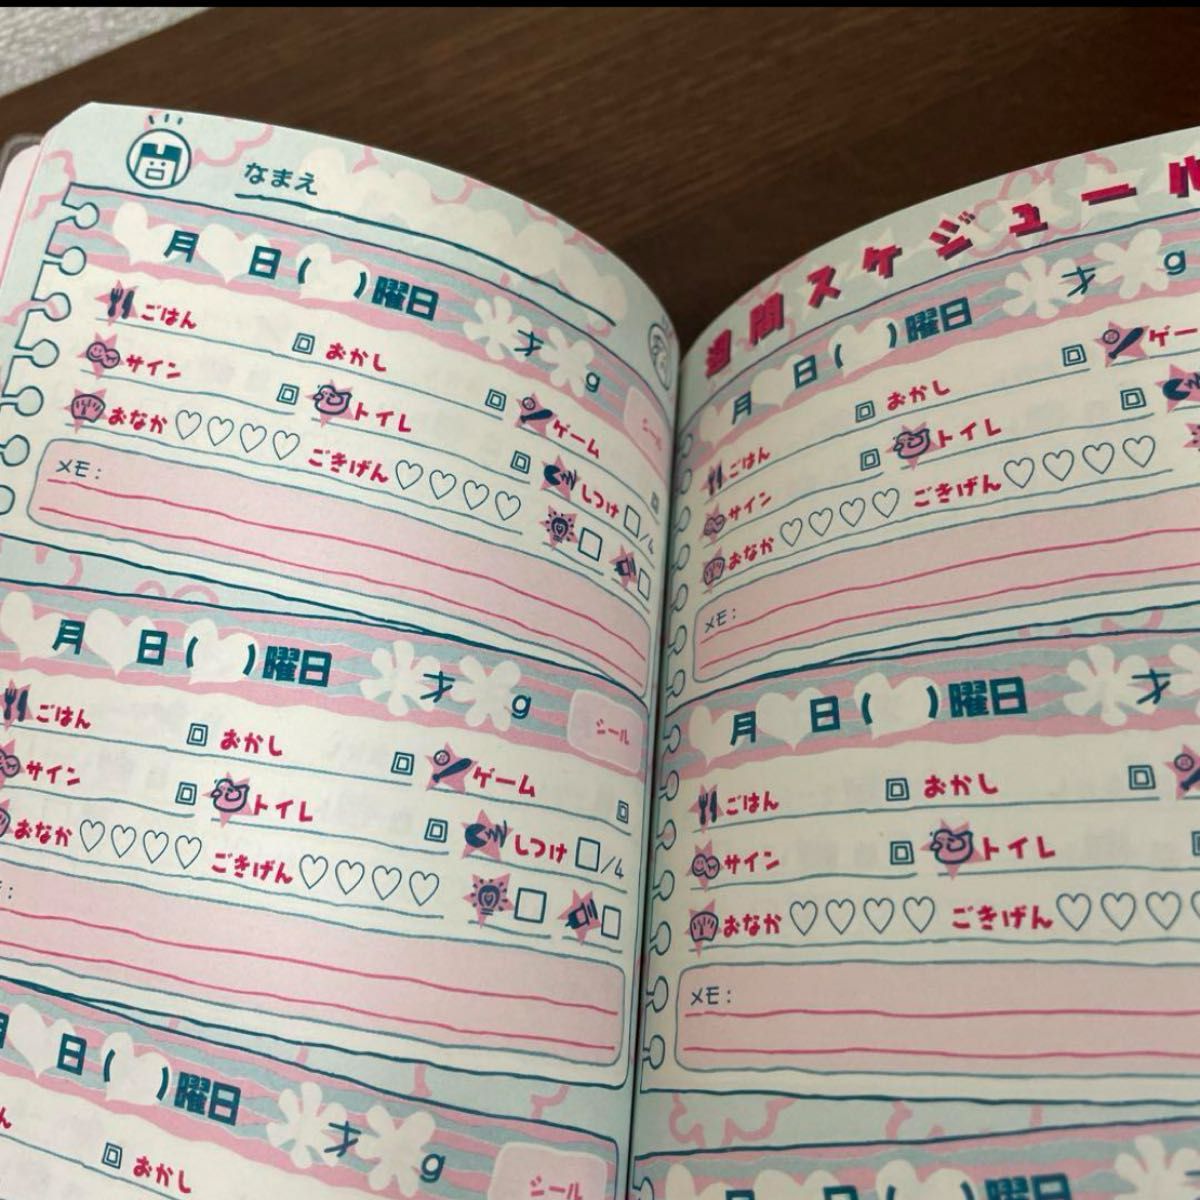 なまえ
月 日 ( ) 曜日 才 g
シール
ごはん 回 おかし 回 ゲーム 回
サイン 回 トイレ 回 しつけ □/4
おなか ♡♡♡♡ ごきげん ♡♡♡♡
メモ:
月 日 ( ) 曜日 才 g
シール
ごはん 回 おかし 回 ゲーム 回
サイン 回 トイレ 回 しつけ □/4
おなか ♡♡♡♡ ごきげん ♡♡♡♡
:
月 日 ( ) 曜日 才 g
シール
ん 回 おかし
週間スケジュール
月 日 ( ) 曜日 才 g
ごはん 回 おかし 回 ゲー
サイン 回 トイレ 回
おなか ♡♡♡♡ ごきげん ♡♡♡♡
メモ:
月 日 ( ) 曜日 才
ごはん 回 おかし 回
サイン 回 トイレ
おなか ♡♡♡♡ ごきげん ♡♡♡♡
メモ:
月 日 ( ) 曜日